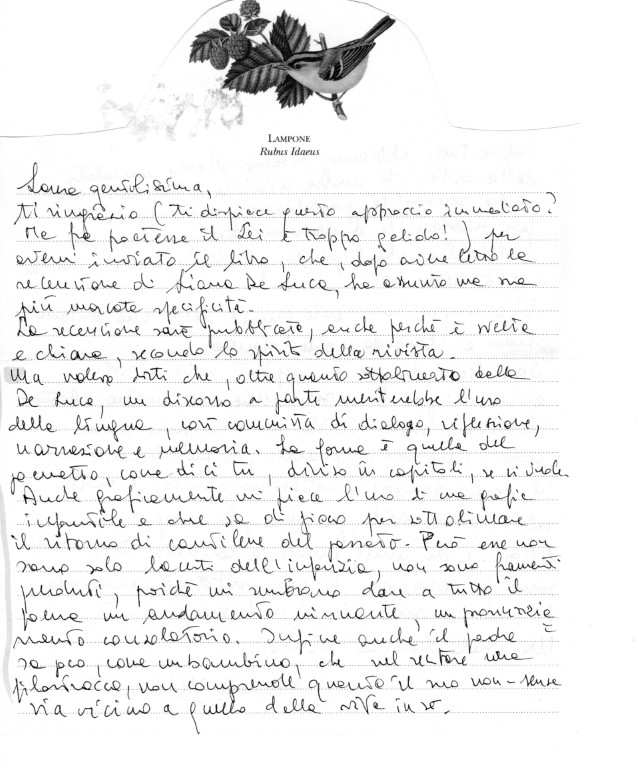 LAMPONE
Rubus Idaeus
gentilissima,
ti ringrazio (ti dispiace questo approccio immediato?
Me fa il Lei è troppo gelido!) per
avermi inviato il libro, che, dopo avere letto la
recensione di Liana De Luca, ha assunto una sua
più marcata specificità.
La recensione sarà pubblicata, anche perché è svelta
e chiara, secondo lo spirito della rivista.
Ma volevo dirti che, oltre quanto sottolineato dalla
De Luca, un discorso a parte meriterebbe l'uso
della lingua, così commista di dialogo, riflessione,
narrazione e memoria. La forma è quella del
poemetto, come dici tu, diviso in capitoli, se si vuole.
Anche graficamente mi piace l'uso di una grafia
infantile e che sa di gioco per sottolineare
il ritorno di cantilene del passato. Però esse non
sono solo lacerti dell'infanzia, non sono frammenti
perduti, poiché mi sembrano dare a tutto il
poema un andamento ninnante, un pronunzia
mento consolatorio. Infine anche il padre è
sa poco, come un bambino, che nel sentire una
filastrocca, non comprende quanto il suo non-sense
sia vicino a quello della vita in sé.